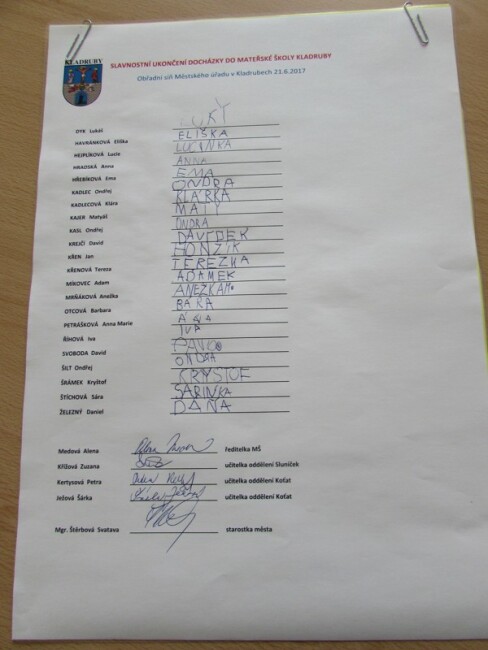 KLADRUBY
SLAVNOSTNÍ UKONČENÍ DOCHÁZKY DO MATEŘSKÉ ŠKOLY KLADRUBY
Obřadní síň Městského úřadu v Kladrubech 21.6.2017
DYK Lukáš LUKY
HAVRÁNKOVÁ Eliška ELIŠKA
HEJPLÍKOVÁ Lucie LUCINKA
HRADSKÁ Anna ANNA
HŘEBÍKOVÁ Ema EMA
KADLEC Ondřej ONDRA
KADLECOVÁ Klára KLÁRKA
KAJER Matyáš MATY
KASL Ondřej ONDRA
KREJČÍ David DAVIDEK
KŘEN Jan HONZÍK
KŘENOVÁ Tereza TEREZKA
MÍKOVEC Adam ADAMEK
MRŇÁKOVÁ Anežka
OTCOVÁ Barbara BARA
PETRÁŠKOVÁ Anna Marie
ŘÍHOVÁ Iva IVA
SVOBODA David
ŠILT Ondřej ONDRA
ŠRÁMEK Kryštof KRYSTOF
ŠTÍCHOVÁ Sára SARINKA
ŽELEZNÝ Daniel DAŇA
Medová Alena ředitelka MŠ
Křížová Zuzana učitelka oddělení Sluníček
Kertysová Petra učitelka oddělení Koťat
Ježová Šárka učitelka oddělení Koťat
Mgr. Štěrbová Svatava starostka města